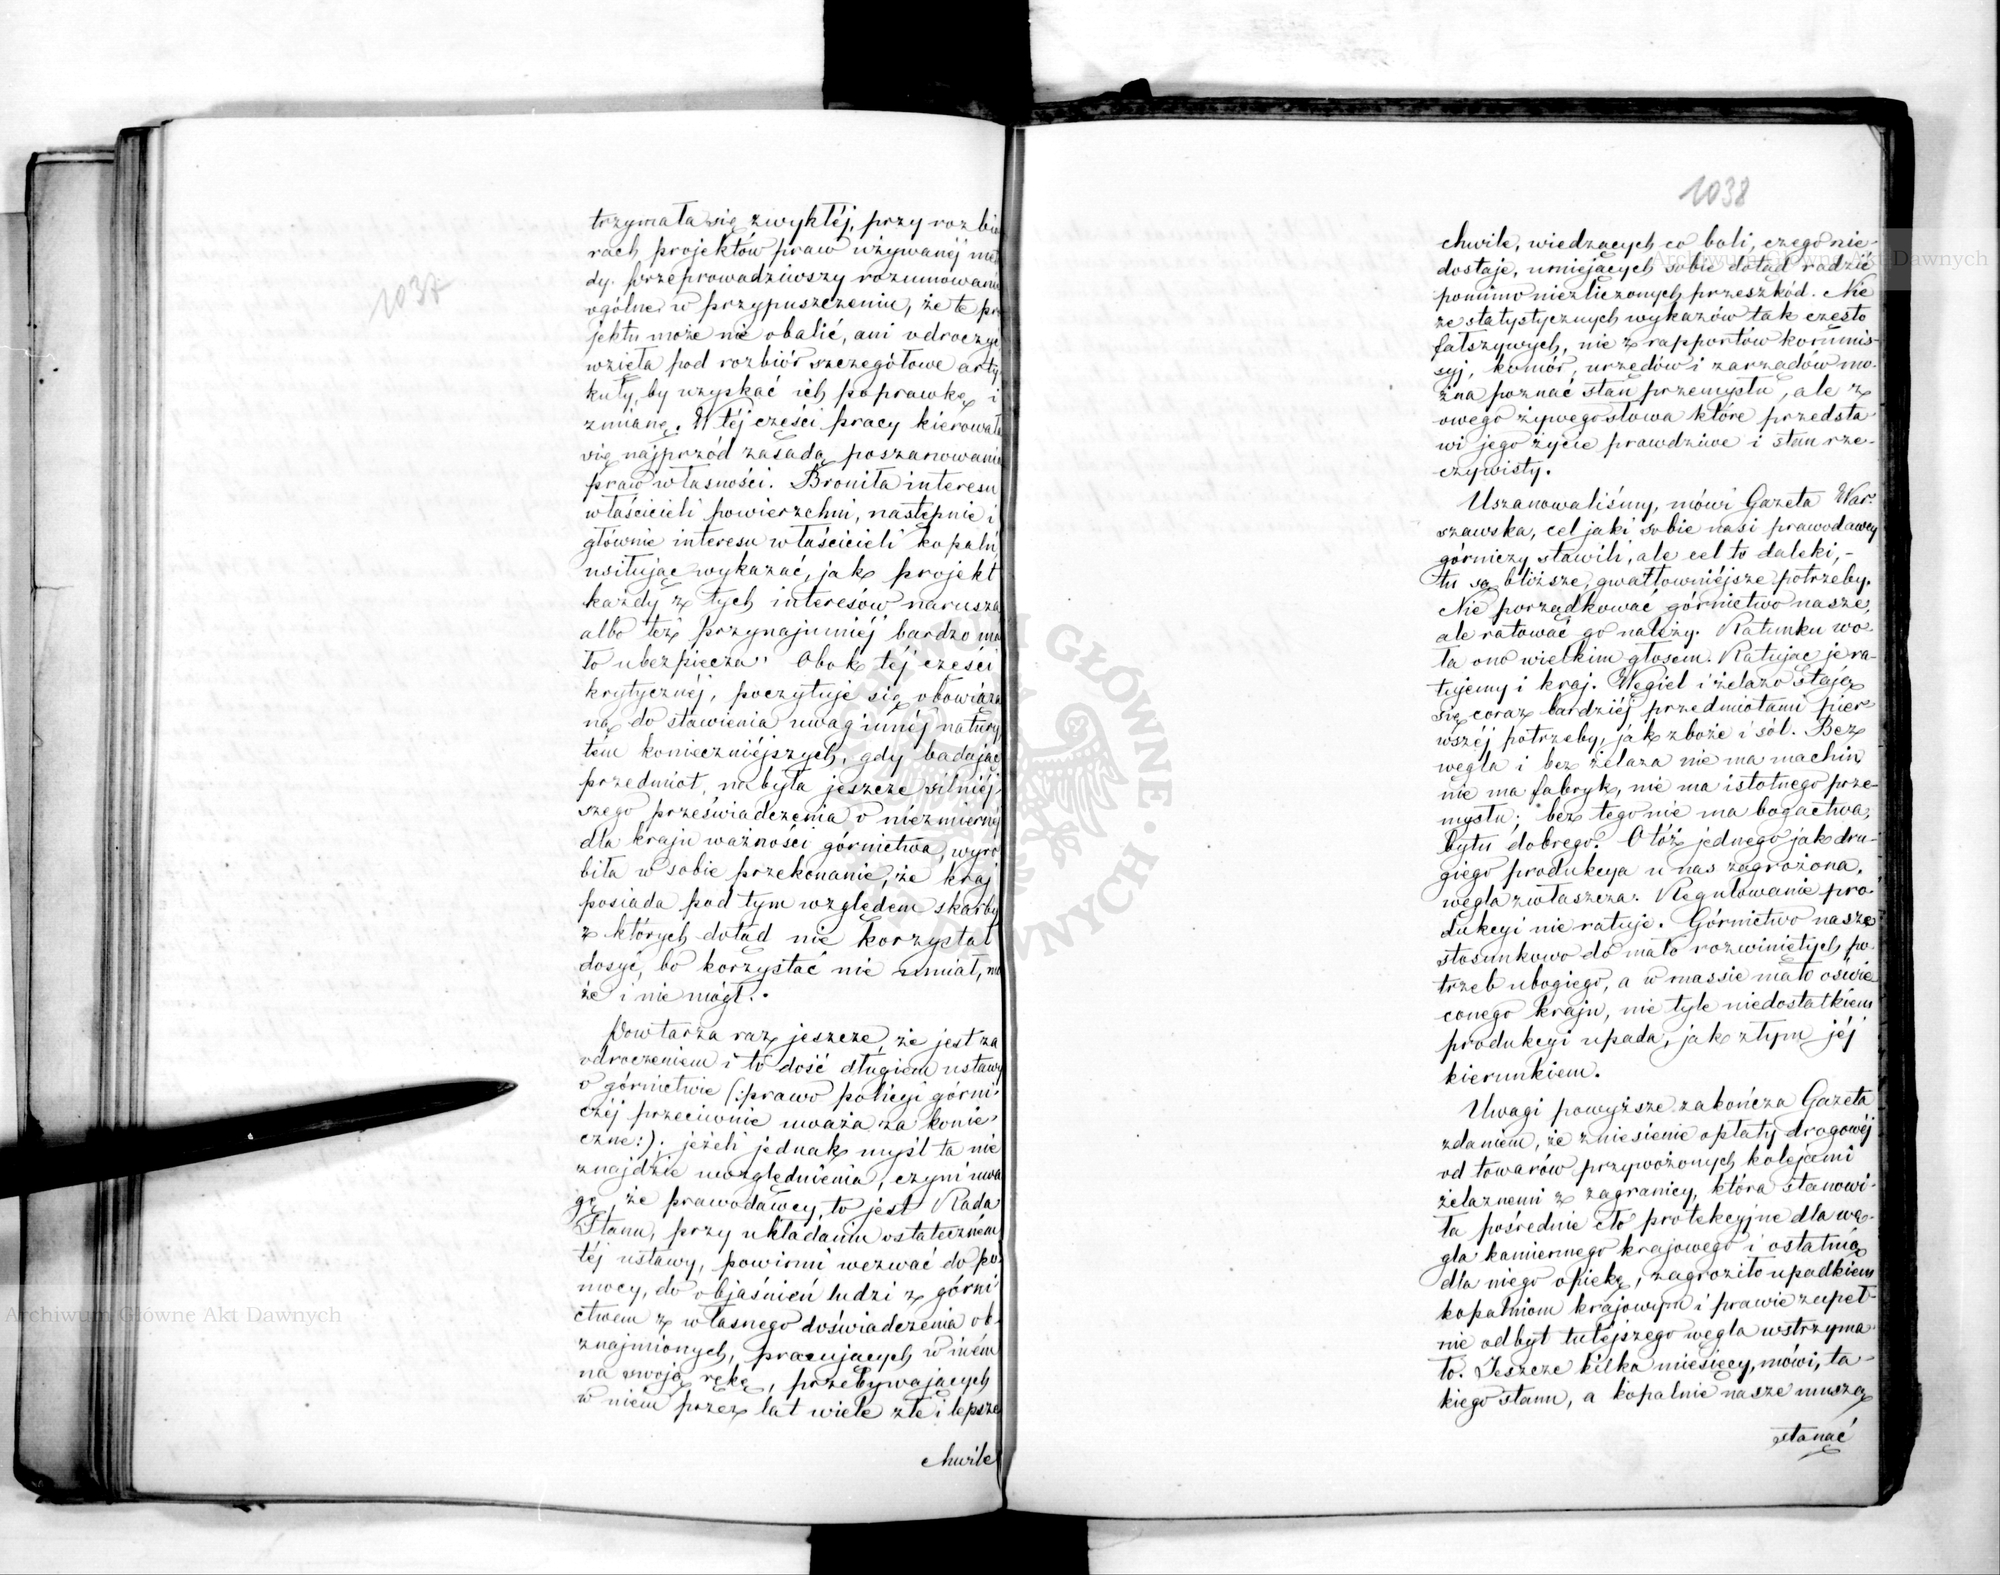 1037
trzymała się zwykłéj, przy rozbio
rach projektów praw używanéj meto
dy. przeprowadziwszy rozumowanie
ogólne w przypuszczeniu, że te pro
jektu może nie obalić, ani odroczyć
wzięła pod rozbiór szczegółowe arty
kuły, by uzyskać ich poprawkę i
zmianę. W téj części pracy kierowała
się najprzód zasadą poszanowania
praw własności. Broniła interesu
właścicieli powierzchni, następnie i
głównie interesu właścicieli kopalń,
usiłując wykazać, jak projekt
każdy z tych interesów narusza
albo też przynajmniéj bardzo ma
ło ubezpiecza" Obok téj części
krytycznéj, poczytuje się obowiąza
ną do stawienia uwag innéj natury
tém konieczniéjszych, gdy badając
przedmiot, nabyła jeszcze silniéj
szego przeświadczenia o niezmiernéj
dla kraju ważności górnictwa, wyro
biła w sobie przekonanie, że kraj
posiada pod tym względem skarby
z których dotąd nie korzystał
dosyć, bo korzystać nie umiał, mo
że i nie mógł.
Powtarza raz jeszcze, że jest za
odroczeniem i to dość długiem ustawy
o górnictwie (:prawo policyi górni
czéj przeciwnie uważa za konie
czne:); jeżeli jednak myśl ta nie
znajdzie uwzględnienia, czyni uwa
gę, że prawodawcy, to jest Rada
Stanu, przy układaniu ostatecznem
téj ustawy, powinni wezwać do po
mocy, do objaśnień ludzi z górni
ctwem z własnego doświadczenia ob
znajmionych, pracujących w niém
na swoją rękę, przebywających
w niem przez lat wiele złe i lepsze
chwile
1038
chwile, wiedzących co boli, czego nie-
dostaje, umiejących sobie dotąd radzić
pomimo niezliczonych przeszkód. Nie
ze statystycznych wykazów tak często
fałszywych, nie z rapportów kommis-
syj, komór, urzędów i zarządów mo-
żna poznać stan przemysłu, ale z
owego żywego słowa które przedsta
wi jego życie prawdziwe i stan rze-
czywisty.
Uszanowaliśmy, mówi Gazeta War-
szawska, cel jaki sobie nasi prawodawcy
górniczy stawili, ale cel to daleki, -
tu są bliższe, gwałtowniéjsze potrzeby.
Nie porządkować górnictwo nasze,
ale ratować go należy. Ratunku wo-
ła ono wielkim głosem. Ratując je ra-
tujemy i kraj. Węgiel i żelazo stają
się coraz bardziéj przedmiotami pier
wszéj potrzeby, jak zboże i sól. Bez
węgla i bez żelaza nie ma machin
nie ma fabryk, nie ma istotnego prze-
mysłu; bez tego nie ma bogactwa,
bytu dobrego. Otóż jednego jak dru-
giego produkcya u nas zagrożona,
węgla zwłaszcza. Regulowanie pro-
dukcyi nie ratuje. Górnictwo nasze
stosunkowo do mało rozwiniętych po-
trzeb ubogiego, a w massie mało oświe
conego kraju, nie tyle niedostatkiem
produkcyi upada, jak złym jéj
kierunkiem.
Uwagi powyższe zakończa Gazeta
zdaniem, że zniesienie opłaty drogowéj
od towarów przywożonych kolejami
żelaznemi z zagranicy, która stanowi-
ła pośrednie cło protekcyjne dla wę-
gla kamiennego krajowego i ostatnią
dla niego opiekę, zagroziło upadkiem
kopalniom krajowym i prawie zupeł-
nie odbyt tutejszego węgla wstrzyma-
ło. Jeszcze kilka miesięcy, mówi, ta-
kiego stanu, a kopalnie nasze muszą
stanąć
Archiwum Główne Akt Dawnych
Archiwum Główne Akt Dawnych
ARCHIWUM GŁÓWNE AKT DAWNYCH